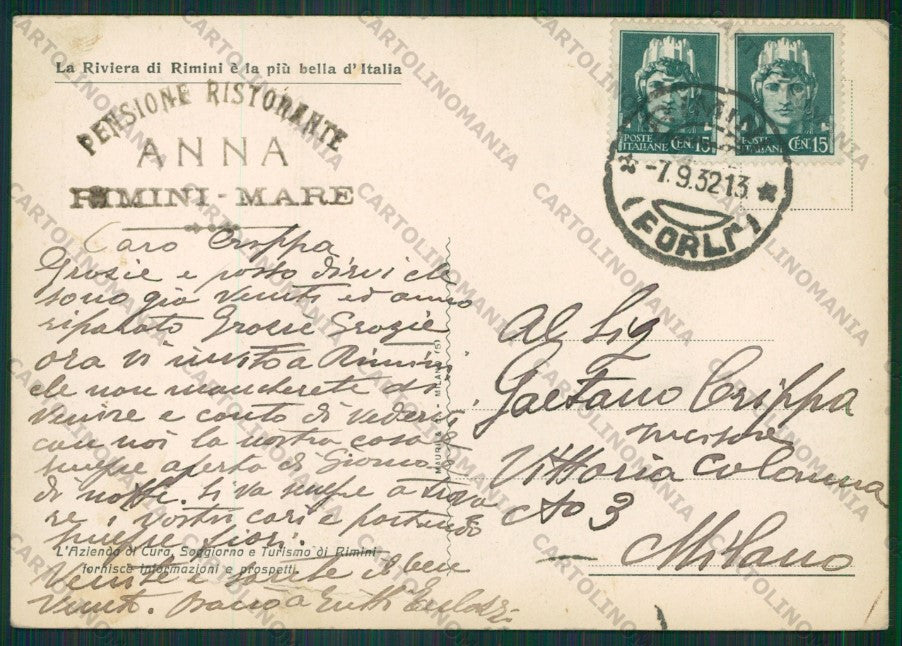 La Riviera di Rimini è la più bella d'Italia
PENSIONE RISTORANTE
ANNA
RIMINI - MARE
POSTE ITALIANE CEN. 15
POSTE ITALIANE CEN. 15
-7.9.32 13
(FORLI')
Caro Crippa
Grasie e posso dirvi che
sono già venuti ed anno
riparato Grosse Grazie
ora vi invito a Rimini
che non mancherete di
venire e conto di vedervi
con noi la nostra casa è
sempre aperta di Giorno e
di notte. si va sempre a trova
re i vostri cari e portando
sempre fiori.
Venite e sarete il ben
venuti. a tutti
L'Azienda di Cura, Soggiorno e Turismo di Rimini
fornisce informazioni e prospetti.
MILANO (5)
Al Sig
Gaetano Crippa
Vittoria Colonna
No 3
Milano
CARTOLINOMANIA